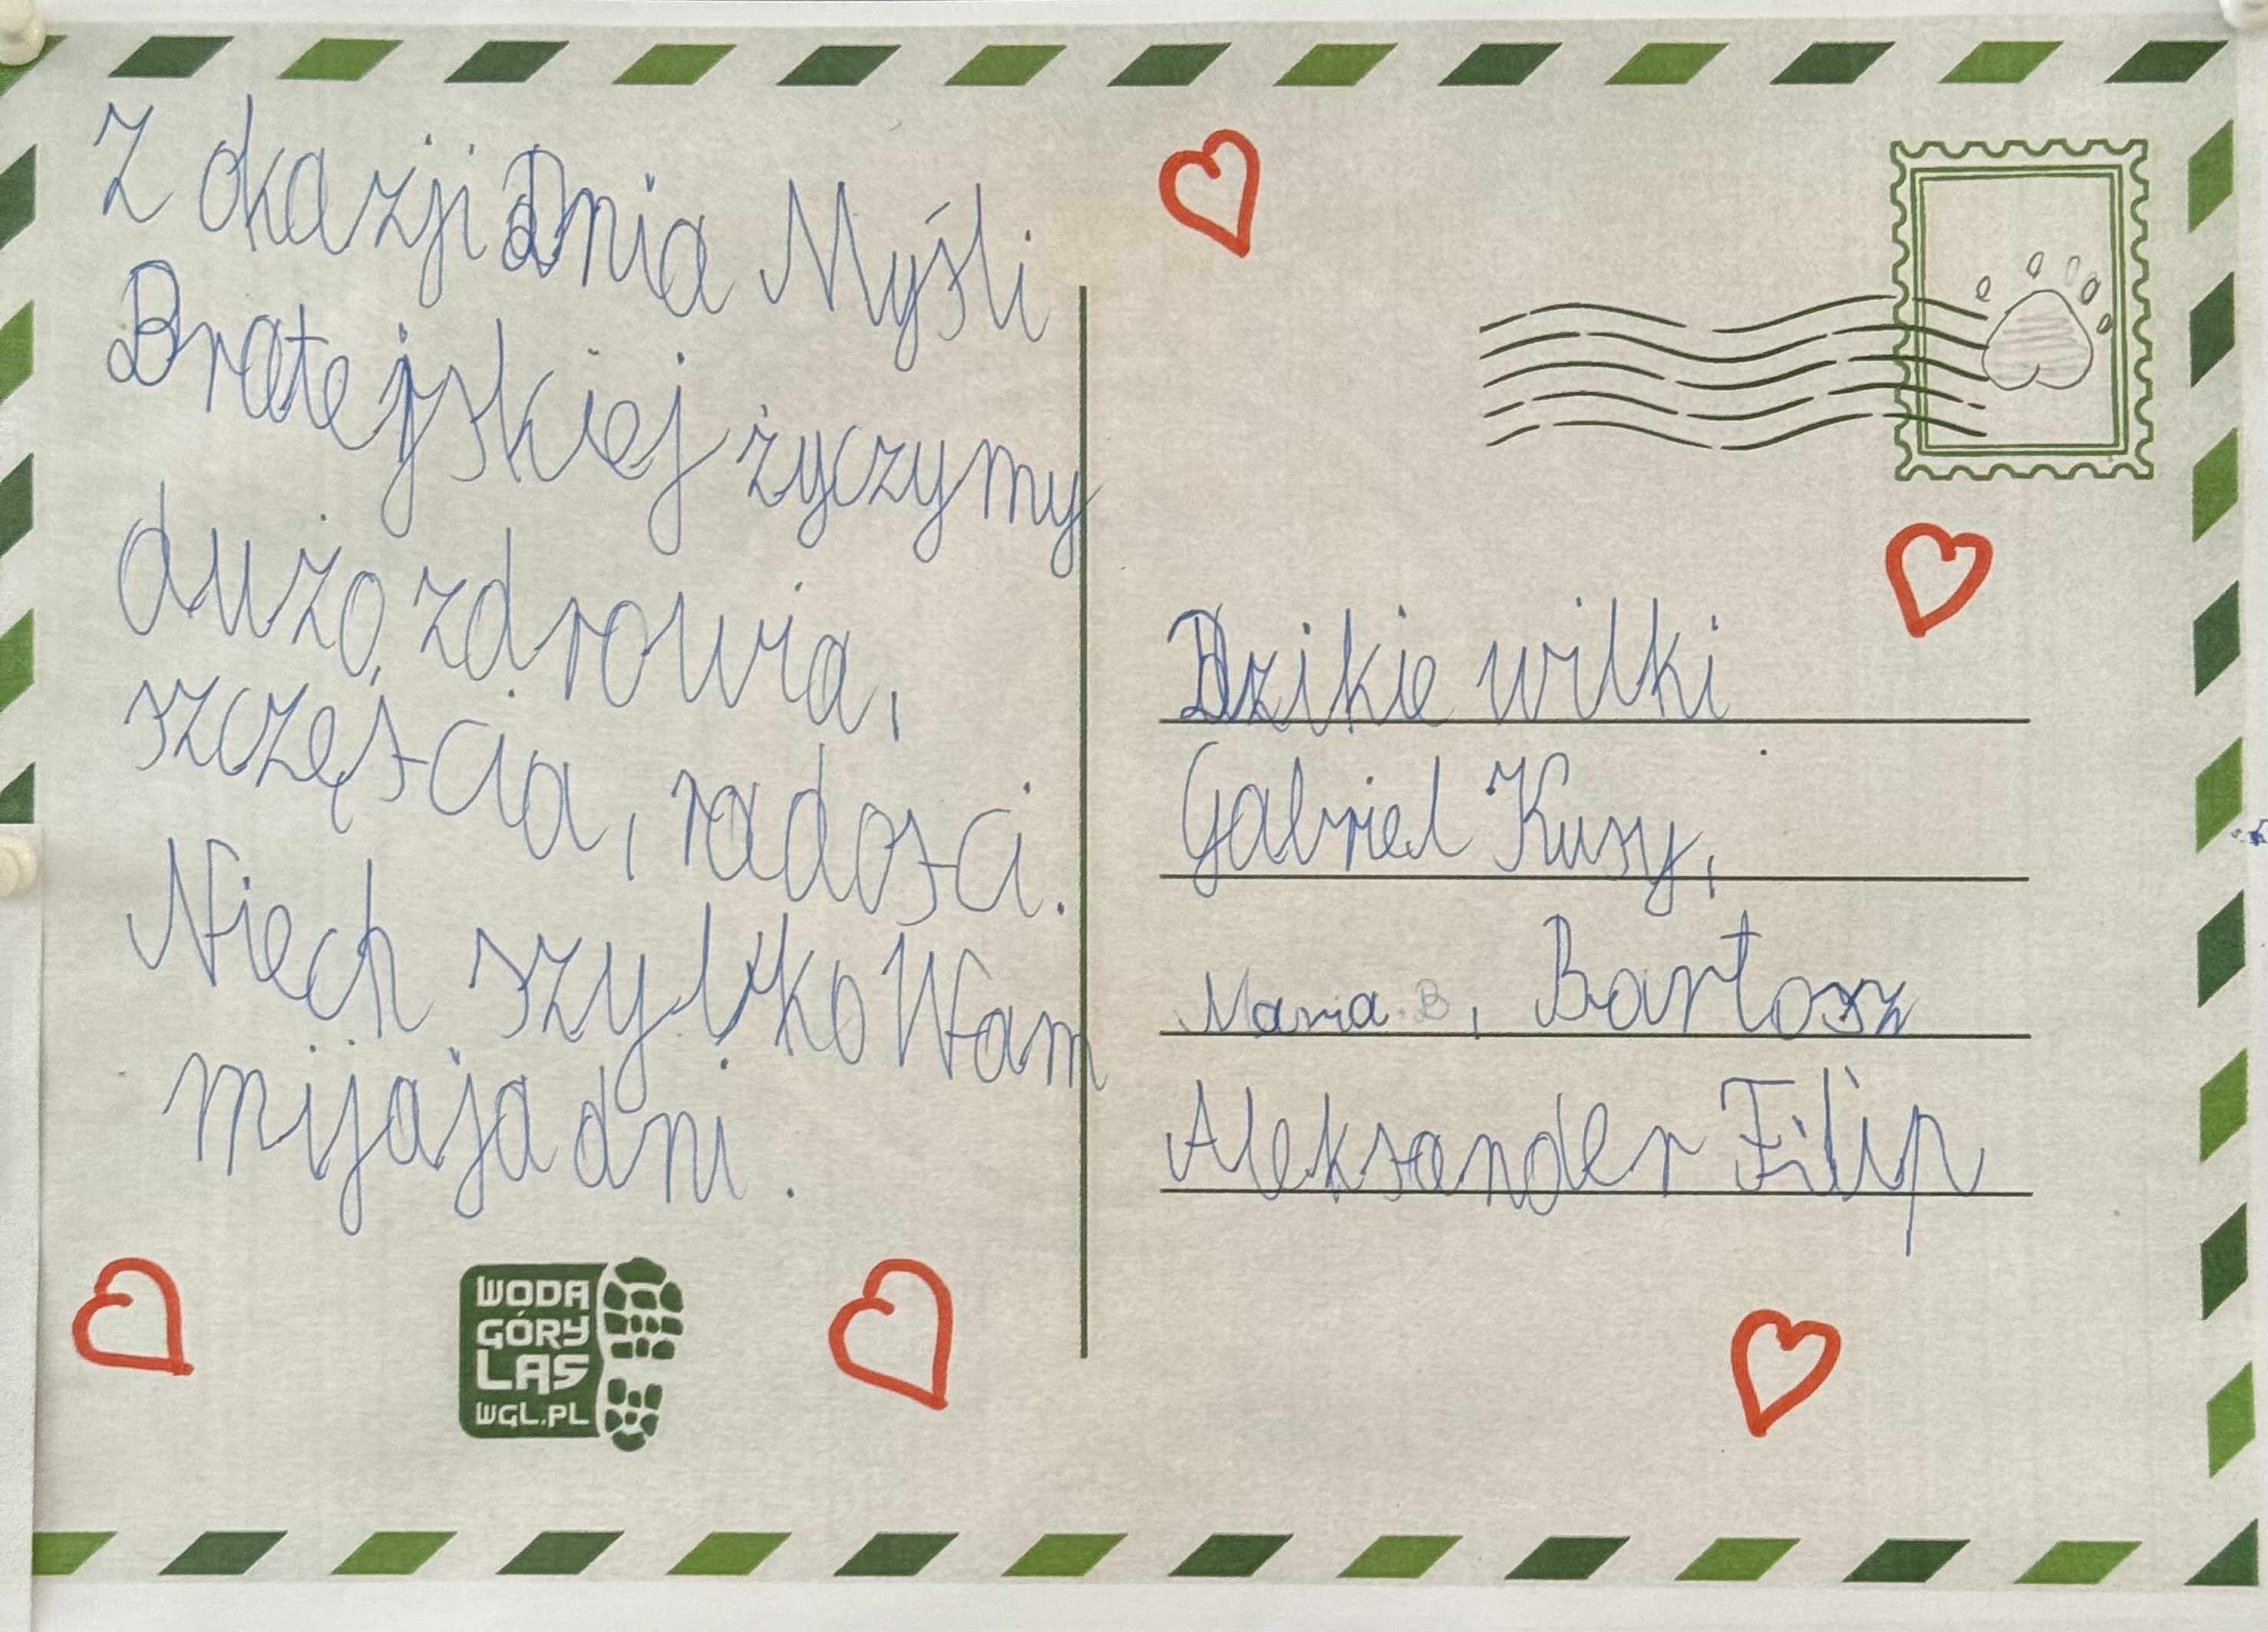 Z okazji Dnia Myśli
Bratejskiej życzymy
dużo zdrowia,
szczęścia, radosci.
Niech szybko Wam
mijaja dni.
Dzikie wilki
Gabriel Kusy,
Maria B, Bartosz
Aleksander Filip
WODA
GÓRY
LAS
WGL.PL